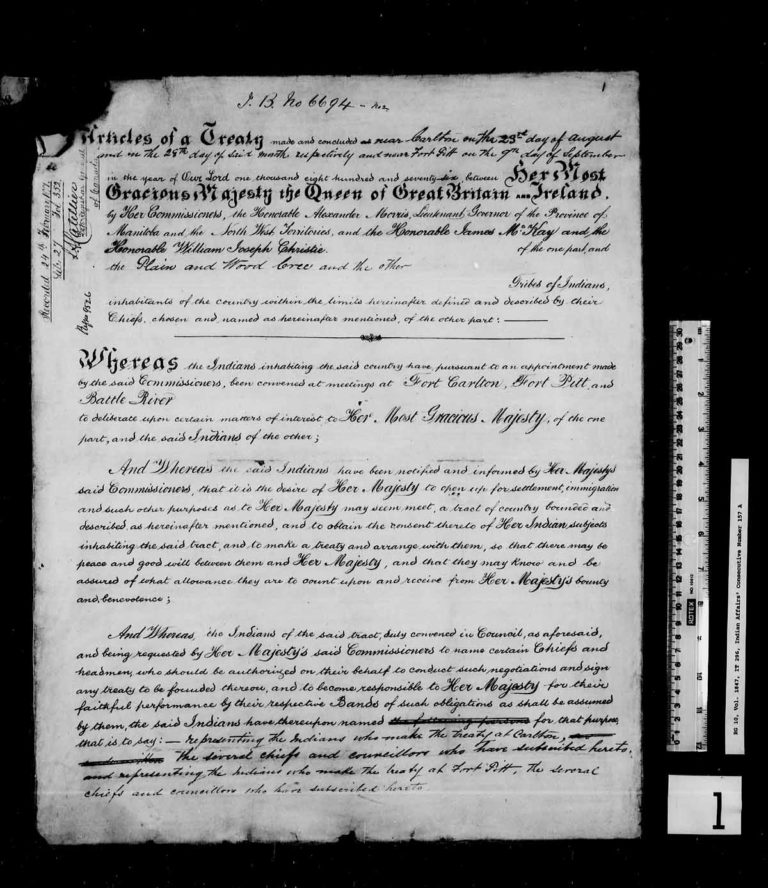 1
I. B. No 6694 -
Articles of a Treaty made and concluded near Carlton on the 23rd day of August
and on the 28th day of said month respectively and near Fort Pitt on the 9th day of September
in the year of Our Lord one thousand eight hundred and seventy-six between Her Most
Gracious Majesty the Queen of Great Britain and Ireland,
by Her Commissioners, the Honorable Alexander Morris, Lieutenant Governor of the Province of
Manitoba and the North West Territories, and the Honorable James McKay and the
Honorable William Joseph Christie of the one part, and
the Plain and Wood Cree and the other
Tribes of Indians,
inhabitants of the country within the limits hereinafter defined and described by their
Chiefs, chosen and named as hereinafter mentioned, of the other part: —
Whereas the Indians inhabiting the said country have, pursuant to an appointment made
by the said Commissioners, been convened at meetings at Fort Carlton, Fort Pitt, and
Battle River
to deliberate upon certain matters of interest to Her Most Gracious Majesty, of the one
part, and the said Indians of the other;
And Whereas the said Indians have been notified and informed by Her Majesty's
said Commissioners, that it is the desire of Her Majesty to open up for settlement, immigration
and such other purposes as to Her Majesty may seem meet, a tract of country bounded and
described as hereinafter mentioned, and to obtain the consent thereto of Her Indian subjects
inhabiting the said tract, and to make a treaty and arrange with them, so that there may be
peace and good will between them and Her Majesty, and that they may know and be
assured of what allowance they are to count upon and receive from Her Majesty's bounty
and benevolence;
And Whereas, the Indians of the said tract, duly convened in Council, as aforesaid,
and being requested by Her Majesty's said Commissioners to name certain Chiefs and
headmen, who should be authorized on their behalf to conduct such negotiations and sign
any treaty to be founded thereon, and to become responsible to Her Majesty for their
faithful performance by their respective Bands of such obligations as shall be assumed
by them, the said Indians have thereupon named the following persons for that purpose,
that is to say: — representing the Indians who make the treaty at Carlton,
the several chiefs and councillors who have subscribed hereto,
and representing the Indians who make the treaty at Fort Pitt, the several
chiefs and councillors who have subscribed hereto
Recorded 24th February 1877
Lib: 27 Fol 353
Deputy Registrar General
of Canada
RG 10, Vol. 1847, IT 296, Indian Affairs' Consecutive Number 157 A
ROTEX
1